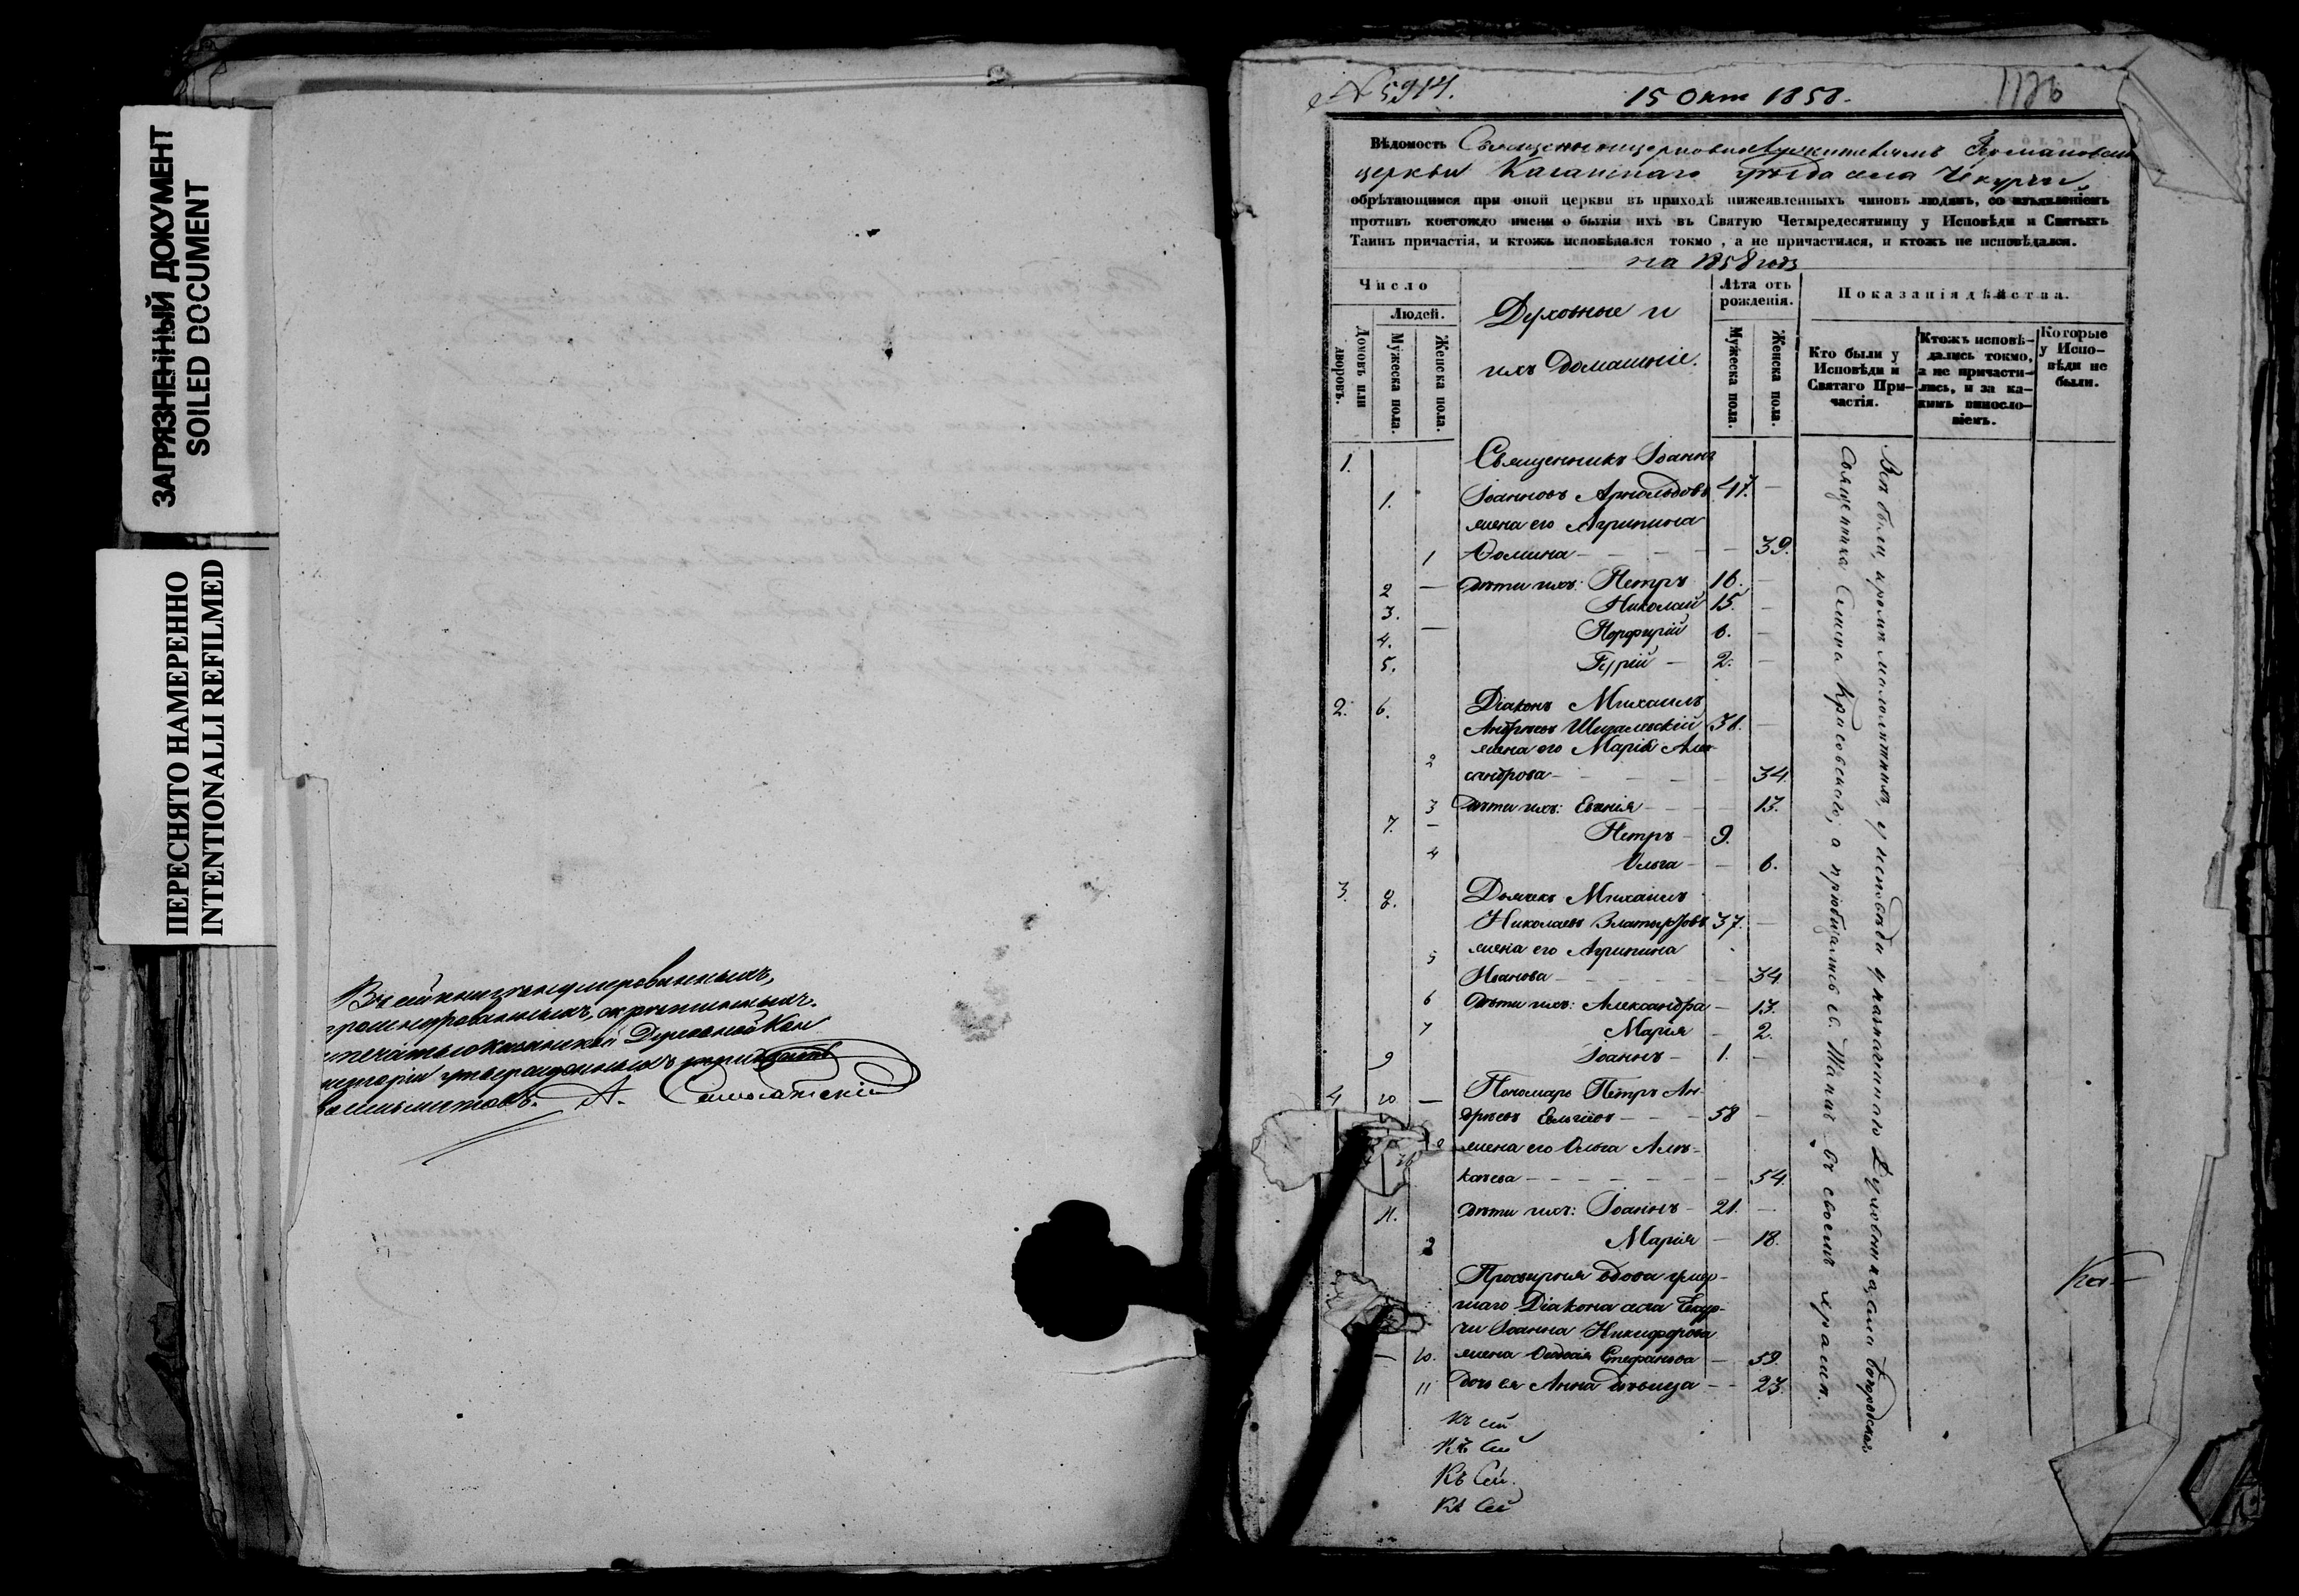 ЗАГРЯЗНЕННЫЙ ДОКУМЕНТ
SOILED DOCUMENT
ПЕРЕСНЯТО НАМЕРЕННО
INTENTIONALLI REFILMED
Въ сей книгѣ нумерованныхъ,
прошнурованныхъ, скрѣпленныхъ
печатью Казанской Духовной Кон
систоріи утвержденныхъ
листовъ. А.
№ 5914.
15 Окт 1858.
Вѣдомость
церкви Казанскаго уѣзда села Чекурчи
обрѣтающимся при оной церкви въ приходѣ нижеявленныхъ чиновъ людямъ, со изъявленіемъ
противъ коегождо имени о бытіи ихъ въ Святую Четыредесятницу у Исповѣди и Святыхъ
Таинъ причастія, и ктожъ исповѣдался токмо, а не причастился, и ктожъ не исповѣдался.
на 1858 годъ
Число
Домовъ или дворовъ.
Людей.
Мужеска пола.
Женска пола.
Духовные и
ихъ домашніе.
Лѣта отъ
рожденія.
Мужеска пола.
Женска пола.
Показанія дѣйства.
Кто были у
Исповѣди и
Святаго При-
частія.
Ктожъ исповѣ-
дались токмо,
а не причасти-
лись, и за ка-
кимъ винословіемъ.
Которые
у Испо-
вѣди не
были.
1. Священникъ Іоаннъ
1. Іоанновъ Арнольдовъ 47. —
жена его Агрипина
1 Фомина — 39.
2 — дѣти ихъ: Петръ 16. —
3. Николай 15. —
4. — Порфирій 6. —
5. Гурій — 2. —
2. 6. Діаконъ Михаилъ
Андреевъ 38. —
2 жена его Марія Алек-
сандрова — 34.
3 дѣти ихъ: Евгенія — 13.
7. — Петръ — 9.
4 Ольга — 6.
3. 8. Дьячекъ Михаилъ
Николаевъ 37. —
5 жена его Агрипина
Иванова — 34.
6 дѣти ихъ: Александра — 13.
7 Марія — 2.
9 Іоаннъ — 1. —
4 10 — Пономарь Петръ Ан-
дреевъ — 58 —
жена его Ольга Алек-
сѣева — 54.
11. дѣти ихъ: Іоаннъ — 21. —
Марія — 18.
Просвирня вдова умер-
шаго Діакона села Чекур-
чи Іоанна Никифорова
— 10. жена Ѳеодосія Стефанова — 59.
11 дочь ея Анна дѣвица — 23.
Всѣ были, кромѣ малолѣтнихъ, у исповѣди у назначеннаго Духовника,
Священника а пріобщались Св. Таинъ въ своемъ храмѣ.
Ка—
Къ сей
Къ Сей
Къ Сей
Къ Сей